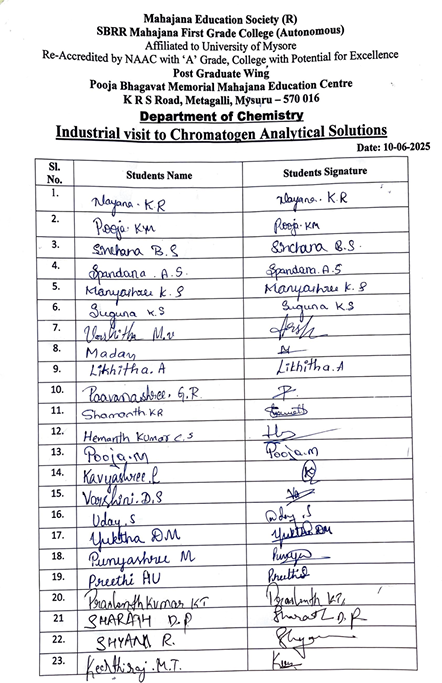 Mahajana Education Society (R)
SBRR Mahajana First Grade College (Autonomous)
Affiliated to University of Mysore
Re-Accredited by NAAC with ‘A’ Grade, College with Potential for Excellence
Post Graduate Wing
Pooja Bhagavat Memorial Mahajana Education Centre
K R S Road, Metagalli, Mysuru – 570 016
Department of Chemistry
Industrial visit to Chromatogen Analytical Solutions
Date: 10-06-2025
Sl. No. Students Name Students Signature
1. Nayana. K.R Nayana. K.R
2. Pooja. KM Pooja. KM
3. Sinchana B.S Sinchana B.S.
4. Spandana .A.S. Spandana.A.S
5. Manyashree K.S Manyashree K.S
6. Suguna K.S Suguna K.S
7. Varshitha M.V
8. Madan
9. Likhitha.A Likhitha.A
10. Paavanashree. G.R P.
11. Shamanth KR
12. Hemanth Kumar C.S
13. Pooja.M Pooja.M
14. Kavyashree.P K
15. Varshini.D.S
16. Uday.S Uday.S
17. Yuktha D.M Yuktha DM
18. Punyashree M
19. Preethi AU Preethi
20. Prashanth Kumar KT Prashanth K.T.
21 SHARATH D.P Sharath D.P
22. SHYANK R.
23. Keerthiraj.M.T.